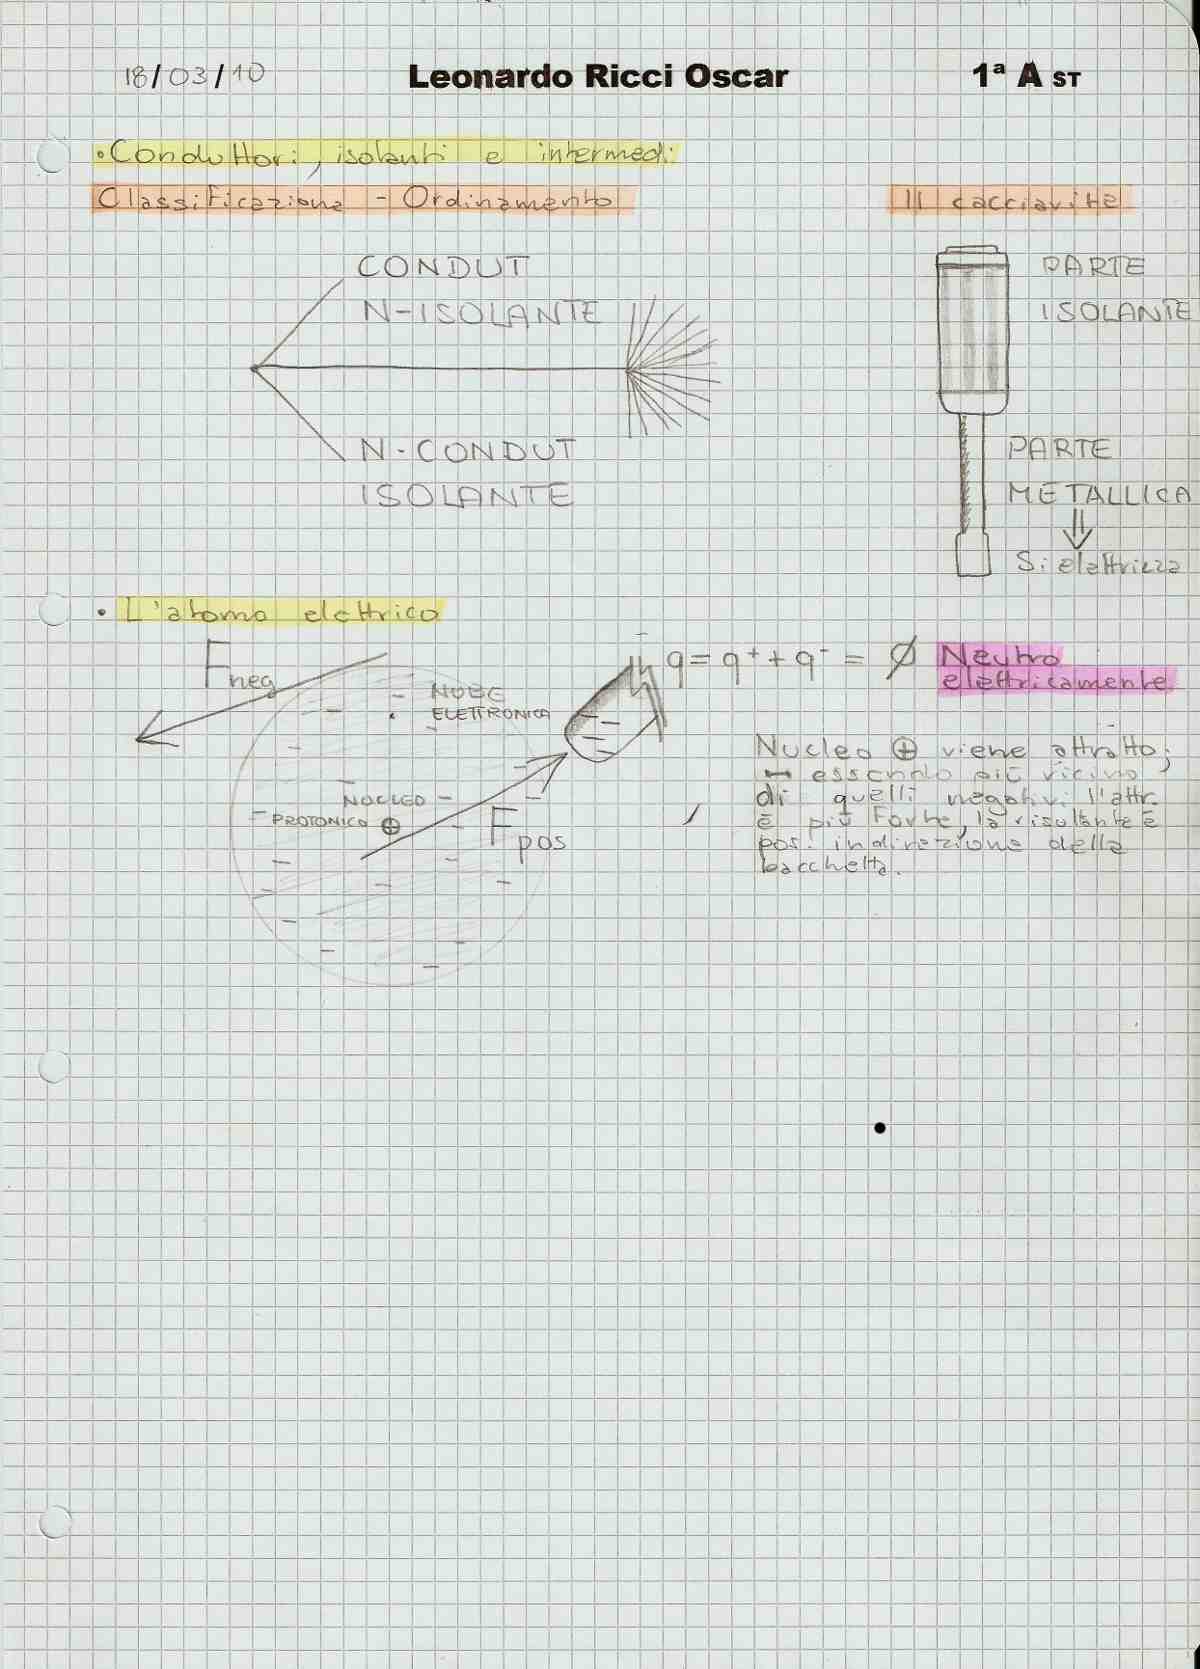 18/03/10
Leonardo Ricci Oscar
1ª A ST
• Conduttori, isolanti e intermedi
Classificazione - Ordinamento
Il cacciavite
CONDUT
N-ISOLANTE
N-CONDUT
ISOLANTE
PARTE
ISOLANTE
PARTE
METALLICA
Si elettrizza
• L'atomo elettrico
Fneg
NUBE
ELETTRONICA
NUCLEO
PROTONICO ⊕
Fpos
q = q⁺ + q⁻ = Ø
Neutro
elettricamente
Nucleo ⊕ viene attratto;
essendo più vicino
di quelli negativi l'attr.
è più forte, la risultante è
pos. in direzione della
bacchetta.